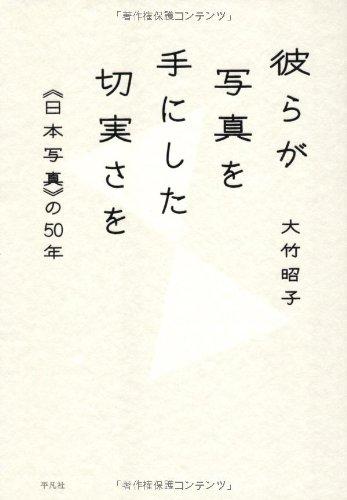 「著作権保護コンテンツ」
彼らが
写真を
手にした
切実さを
《日本写真》の50年
大竹昭子
平凡社
「著作権保護コンテンツ」